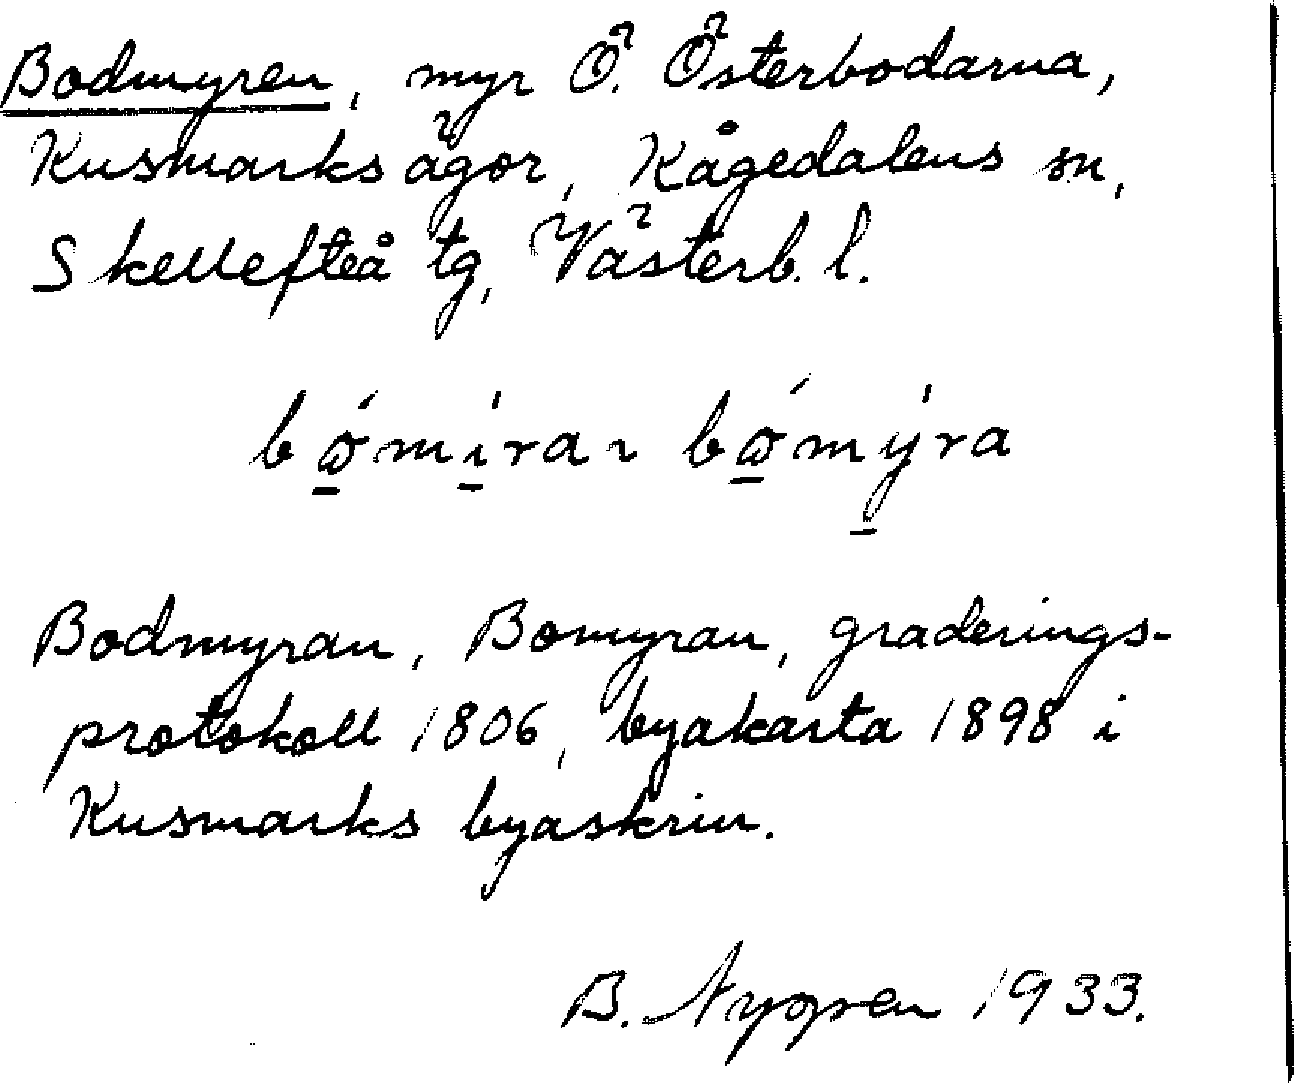 Bodmyren, myr Ö. Österbodarna,
Kusmarks ägor, Kågedalens sn,
Skellefteå tg, Västerb. l.
bώ̱mı̱́ra ı bώ̱mý̱ra
Bodmyran, Bomyran, graderings-
protokoll 1806, byakarta 1898 i
Kusmarks byaskrin.
B. Nygren 1933.